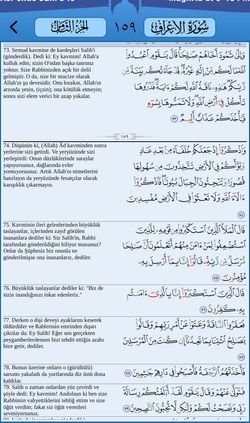 الجزء الثامن
١٥٩
سورة الأعراف
73. Semud kavmine de kardeşleri Salih'i
(gönderdik). Dedi ki: Ey kavmim! Allah'a
kulluk edin; sizin O'ndan başka tanrınız
yoktur. Size Rabbinizden açık bir delil
gelmiştir. O da, size bir mucize olarak
Allah'ın şu devesidir. Onu bırakın, Allah'ın
arzında yesin, (içsin); ona kötülük etmeyin;
sonra sizi elem verici bir azap yakalar.
وَإِلَىٰ ثَمُودَ أَخَاهُمْ صَالِحًا قَالَ يَا قَوْمِ اعْبُدُوا
اللَّهَ مَا لَكُمْ مِنْ إِلَٰهٍ غَيْرُهُ قَدْ جَاءَتْكُمْ بَيِّنَةٌ
مِنْ رَبِّكُمْ هَٰذِهِ نَاقَةُ اللَّهِ لَكُمْ آيَةً فَذَرُوهَا
تَأْكُلْ فِي أَرْضِ اللَّهِ وَلَا تَمَسُّوهَا بِسُوءٍ
فَيَأْخُذَكُمْ عَذَابٌ أَلِيمٌ ﴿٧٣﴾
١٥٩
74. Düşünün ki, (Allah) Âd kavminden sonra
yerlerine sizi getirdi. Ve yeryüzünde sizi
yerleştirdi: Onun düzlüklerinde saraylar
yapıyorsunuz, dağlarında evler
yontuyorsunuz. Artık Allah'ın nimetlerini
hatırlayın da yeryüzünde fesatçılar olarak
karışıklık çıkarmayın.
وَاذْكُرُوا إِذْ جَعَلَكُمْ خُلَفَاءَ مِنْ بَعْدِ عَادٍ
وَبَوَّأَكُمْ فِي الْأَرْضِ تَتَّخِذُونَ مِنْ سُهُولِهَا
قُصُورًا وَتَنْحِتُونَ الْجِبَالَ بُيُوتًا فَاذْكُرُوا
آلَاءَ اللَّهِ وَلَا تَعْثَوْا فِي الْأَرْضِ مُفْسِدِينَ ﴿٧٤﴾
75. Kavminin ileri gelenlerinden büyüklük
taslayanlar, içlerinden zayıf görülen
inananlara dediler ki: Siz Salih'in, Rabbi
tarafından gönderildiğini biliyor musunuz?
Onlar da Şüphesiz biz onunla ne
gönderilmişse ona inananlarız, dediler.
قَالَ الْمَلَأُ الَّذِينَ اسْتَكْبَرُوا مِنْ قَوْمِهِ لِلَّذِينَ
اسْتُضْعِفُوا لِمَنْ آمَنَ مِنْهُمْ أَتَعْلَمُونَ أَنَّ صَالِحًا
مُرْسَلٌ مِنْ رَبِّهِ قَالُوا إِنَّا بِمَا أُرْسِلَ بِهِ
مُؤْمِنُونَ ﴿٧٥﴾
76. Büyüklük taslayanlar dediler ki: "Biz de
sizin inandığınızı inkar edenleriz."
قَالَ الَّذِينَ اسْتَكْبَرُوا إِنَّا بِالَّذِي آمَنْتُمْ بِهِ
كَافِرُونَ ﴿٧٦﴾
77. Derken o dişi deveyi ayaklarını keserek
öldürdüler ve Rablerinin emrinden dışarı
çıktılar da: Ey Salih! Eğer sen gerçekten
peygamberlerdensen bizi tehdit ettiğin azabı
bize getir, dediler.
فَعَقَرُوا النَّاقَةَ وَعَتَوْا عَنْ أَمْرِ رَبِّهِمْ وَقَالُوا
يَا صَالِحُ ائْتِنَا بِمَا تَعِدُنَا إِنْ كُنْتَ مِنَ الْمُرْسَلِينَ
﴿٧٧﴾
78. Bunun üzerine onları o (gürültülü)
sarsıntı yakaladı da yurtlarında diz üstü dona
kaldılar.
فَأَخَذَتْهُمُ الرَّجْفَةُ فَأَصْبَحُوا فِي دَارِهِمْ جَاثِمِينَ ﴿٧٨﴾
79. Salih o zaman onlardan yüz çevirdi ve
şöyle dedi: Ey kavmim! Andolsun ki ben size
Rabbimin vahyettiklerini tebliğ ettim ve size
öğüt verdim; fakat siz öğüt verenleri
sevmiyorsunuz.
فَتَوَلَّىٰ عَنْهُمْ وَقَالَ يَا قَوْمِ لَقَدْ أَبْلَغْتُكُمْ رِسَالَةَ
رَبِّي وَنَصَحْتُ لَكُمْ وَلَٰكِنْ لَا تُحِبُّونَ النَّاصِحِينَ ﴿٧٩﴾